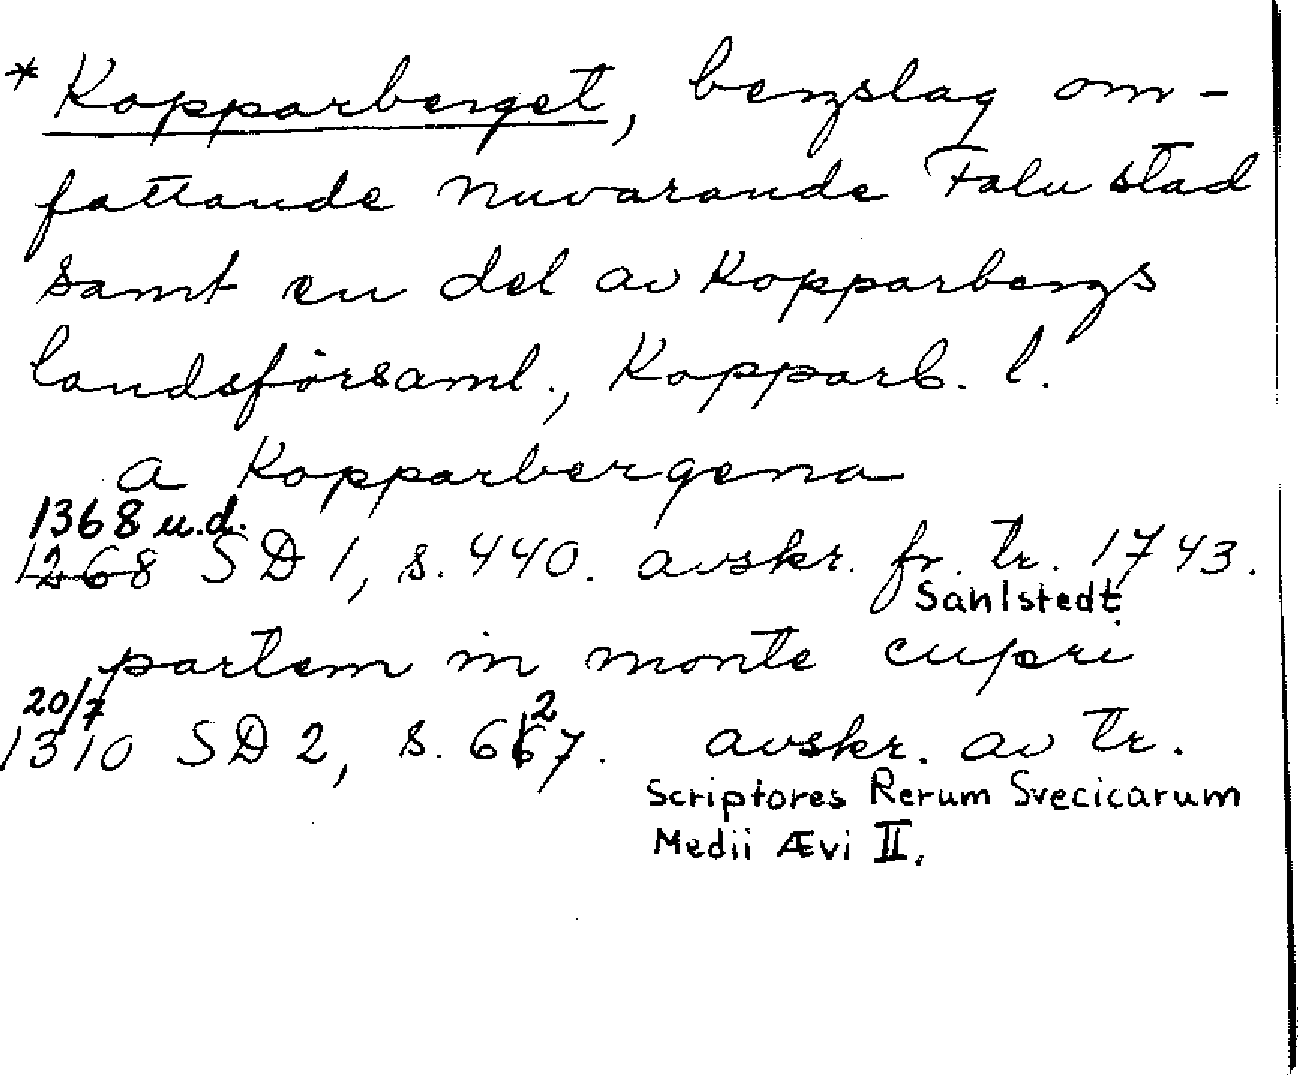 * Kopparberget, bergslag om-
fattande nuvarande Falu stad
samt en del av Kopparbergs
landsförsaml., Kopparb. l.
a Kopparbergena
1368 u.d.
1268 SD 1, s. 440. avskr. fr. tr. 1743.
Sahlstedt.
partem in monte cupri
20/7
1310 SD 2, s. 627. avskr. av tr.
Scriptores Rerum Svecicarum
Medii Ævi II.